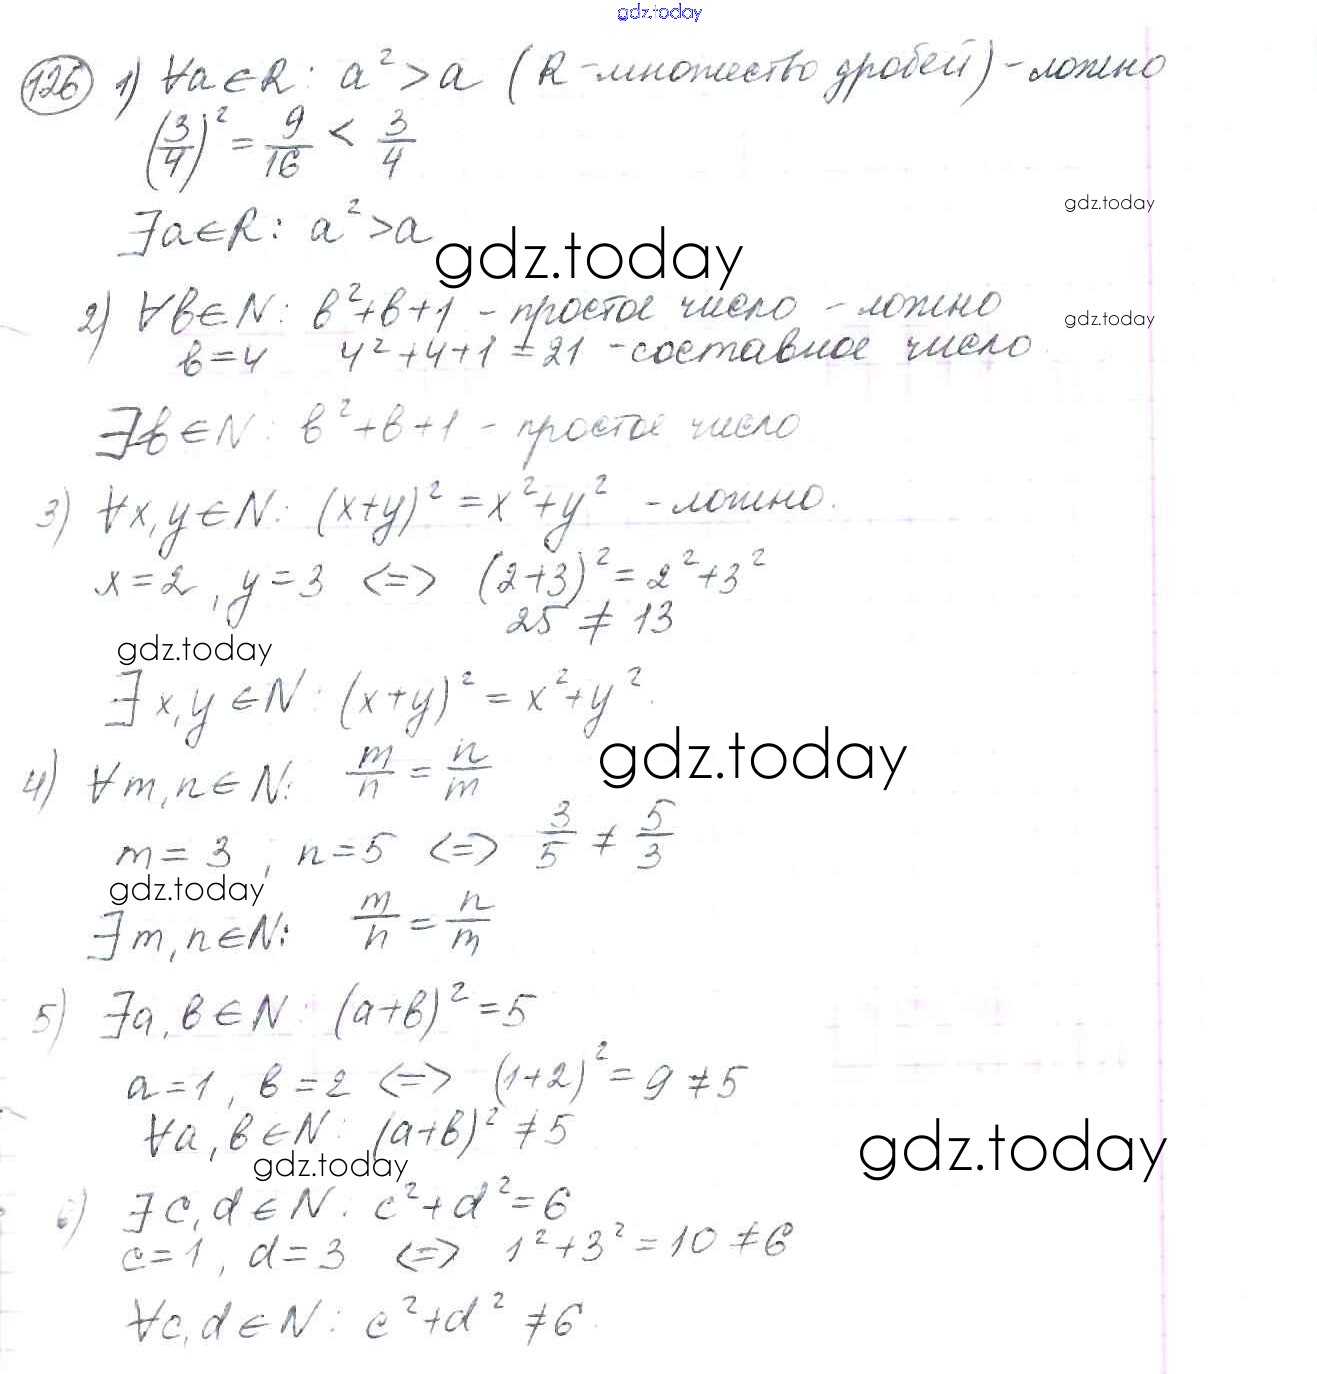 gdz.today
126 1) ∀a∈R: a² > a (R - множество дробей) - ложно
(3/4)² = 9/16 < 3/4
gdz.today
∃a∈R: a² > a
gdz.today
2) ∀в∈N: в²+в+1 - простое число - ложно
gdz.today
в=4 4²+4+1 = 21 - составное число
∃в∈N: в²+в+1 - простое число
3) ∀x,y∈N: (x+y)² = x²+y² - ложно.
x=2, y=3 <=> (2+3)² = 2²+3²
25 ≠ 13
gdz.today
∃x,y∈N: (x+y)² = x²+y².
gdz.today
4) ∀m,n∈N: m/n = n/m
m=3, n=5 <=> 3/5 ≠ 5/3
gdz.today
∃m,n∈N: m/n = n/m
5) ∃a,в∈N: (a+в)² = 5
a=1, в=2 <=> (1+2)² = 9 ≠ 5
∀a,в∈N: (a+в)² ≠ 5
gdz.today
gdz.today
6) ∃c,d∈N: c²+d² = 6
c=1, d=3 <=> 1²+3² = 10 ≠ 6
∀c,d∈N: c²+d² ≠ 6.